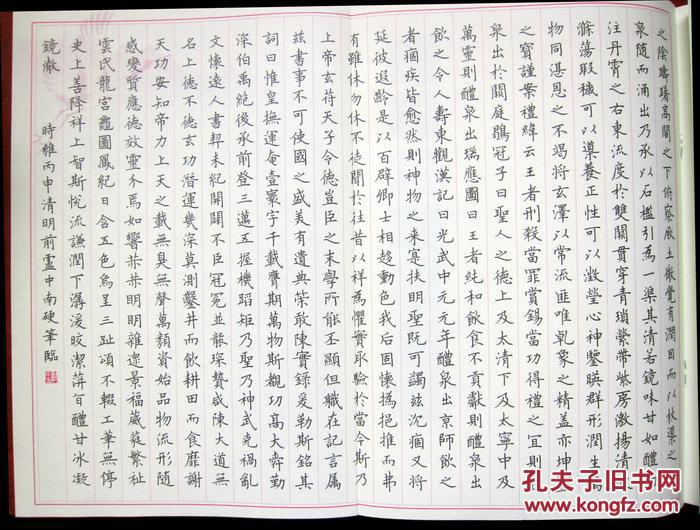 之陰躊躇高閣之下俯察厥土微覺有潤因而以杖導之
泉隨而涌出乃承以石檻引為一渠其清若鏡味甘如醴
注丹霄之右東流度於雙闕貫穿青瑣縈帶紫房激揚清
滌蕩瑕穢可以導養正性可以澂瑩心神鑒暎群形潤生萬
物同湛恩之不竭將玄澤以常流匪唯乾象之精蓋亦坤
之寶謹案禮緯云王者刑殺當罪賞錫當功得禮之宜則
泉出於闕庭鶡冠子曰聖人之德上及太清下及太寧中及
萬靈則醴泉出瑞應圖曰王者純和飲食不貢獻則醴泉出
飲之令人壽東觀漢記曰光武中元元年醴泉出京師飲之
者痼疾皆愈然則神物之來寔扶明聖既可蠲茲沉痼又將
延彼遐齡是以百辟卿士相趨動色我后固懷撝挹推而弗
有雖休勿休不徒聞於往昔以祥為懼實取驗於當今斯乃
上帝玄符天子令德豈臣之末學所能丕顯但職在記言屬
茲書事不可使國之盛美有遺典策敢陳實錄爰勒斯銘其
詞曰惟皇撫運奄壹寰宇千載膺期萬物斯覩功高大舜勤
深伯禹絕後承前登三邁五握機蹈矩乃聖乃神武克禍亂
文懷遠人書契未紀開闢不臣冠冕並襲琛贄咸陳大道無
名上德不德玄功潛運幾深莫測鑿井而飲耕田而食靡謝
天功安知帝力上天之載無臭無聲萬類資始品物流形隨
感變質應德效靈介焉如響赫赫明明雜遝景福葳蕤繁祉
雲氏龍宮龜圖鳳紀日含五色烏呈三趾頌不輟工筆無停
史上善降祥上智斯悅流謙潤下潺湲皎潔蓱旨醴甘冰凝
鏡澈
時維丙申清明前靈中南硬筆臨
孔夫子旧书网
www.kongfz.com